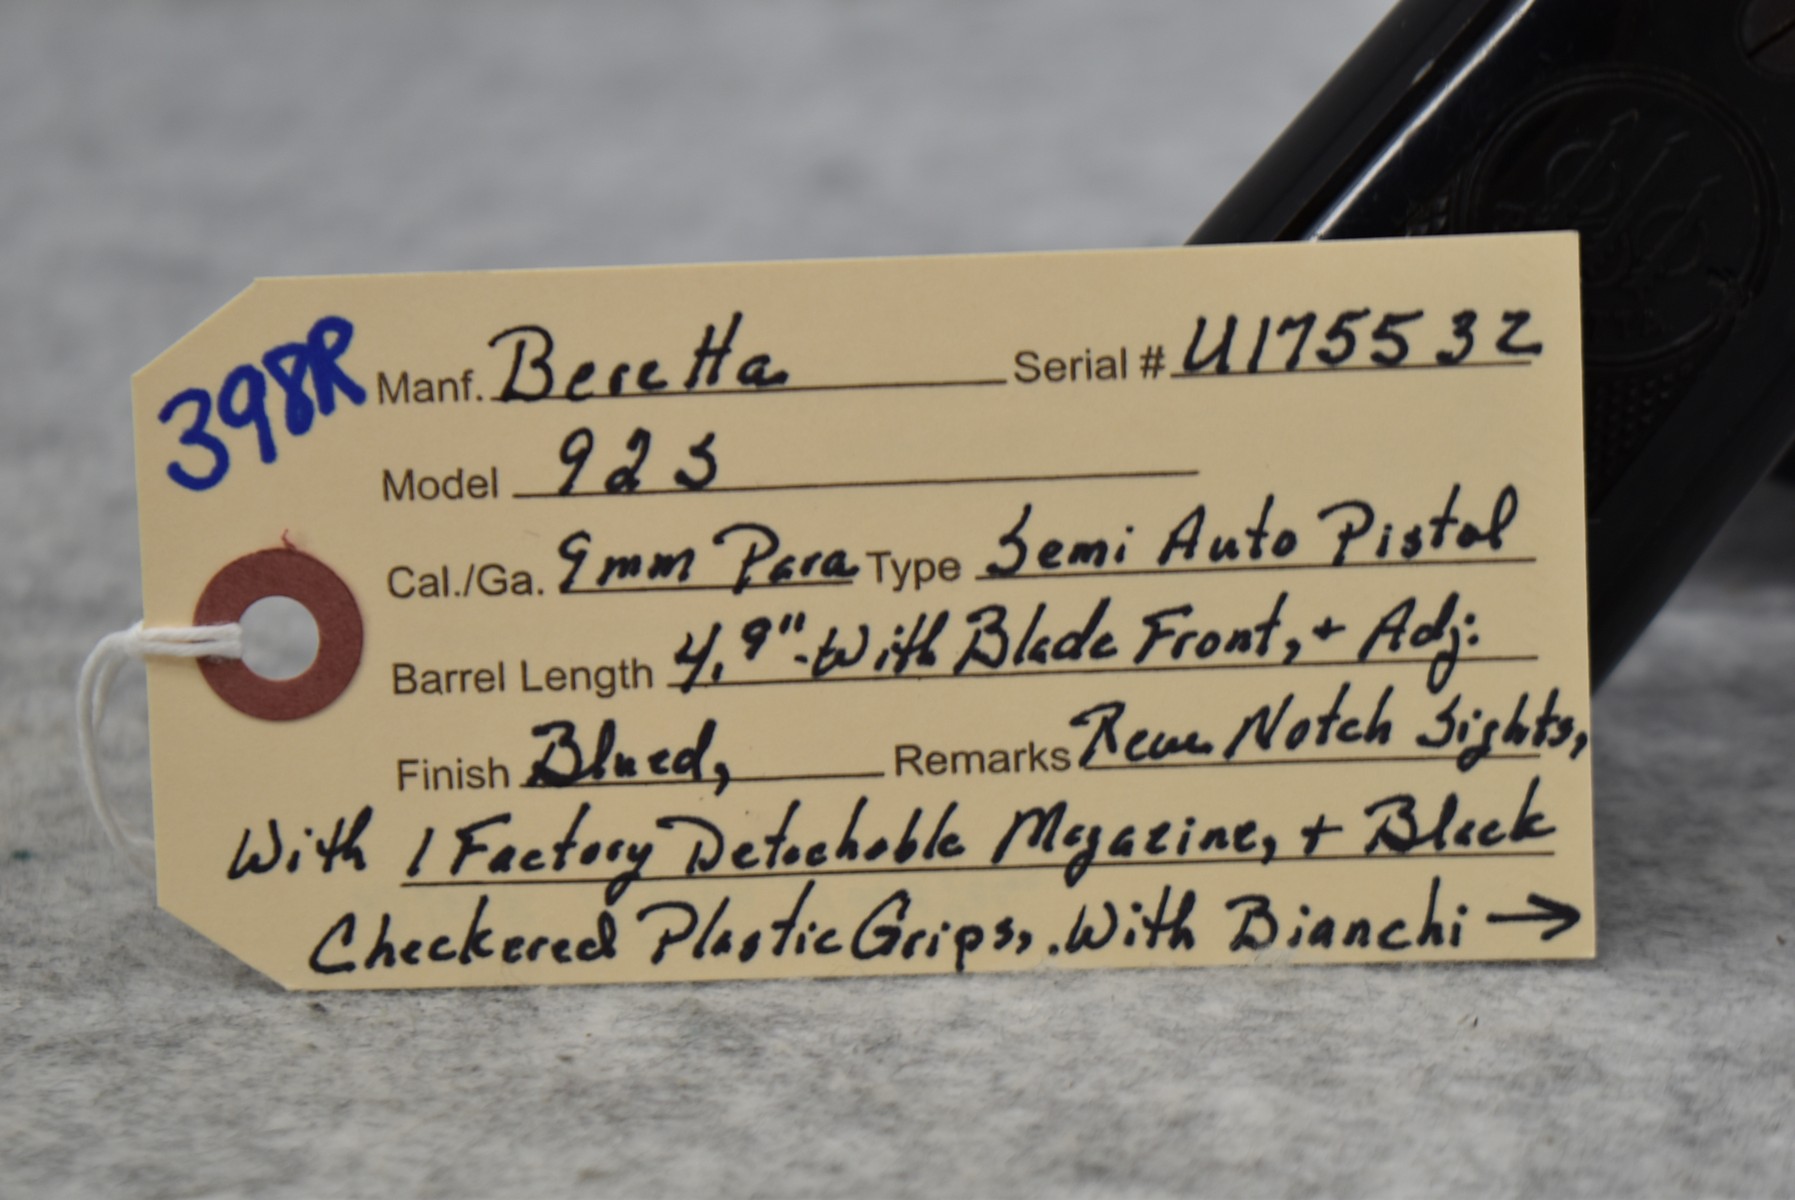 398R
Manf. Beretta Serial # U175532
Model 92S
Cal./Ga. 9mm Para Type Semi Auto Pistol
Barrel Length 4.9" With Blade Front, + Adj.
Finish Blued, Remarks Rear Notch Sights,
With 1 Factory Detachable Magazine, + Black
Checkered Plastic Grips, . With Bianchi →